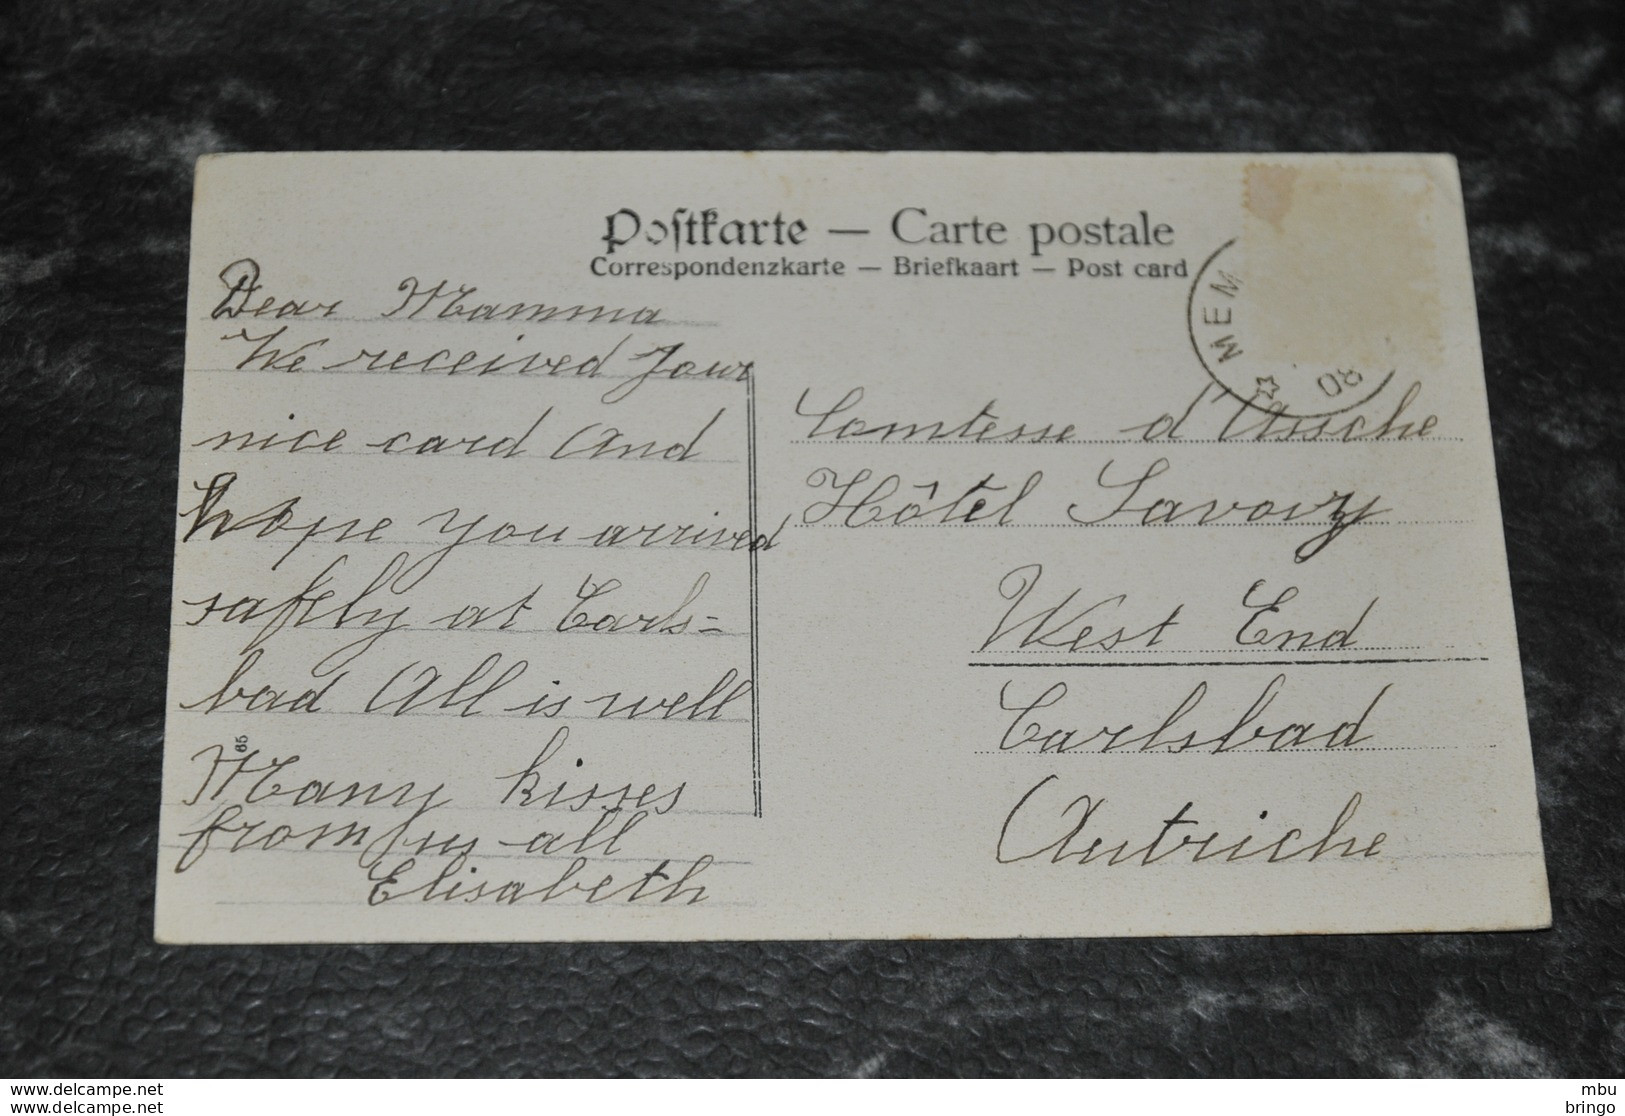 Postkarte — Carte postale
Correspondenzkarte — Briefkaart — Post card
Dear Mamma
We received your
nice card and
hope you arrived
safely at Carls=
bad All is well
Many kisses
from us all
Elisabeth
65
MEM
08
Comtesse d'Assche
Hôtel Savoy
West End
Carlsbad
Autriche
www.delcampe.net
www.delcampe.net
mbu
bringo